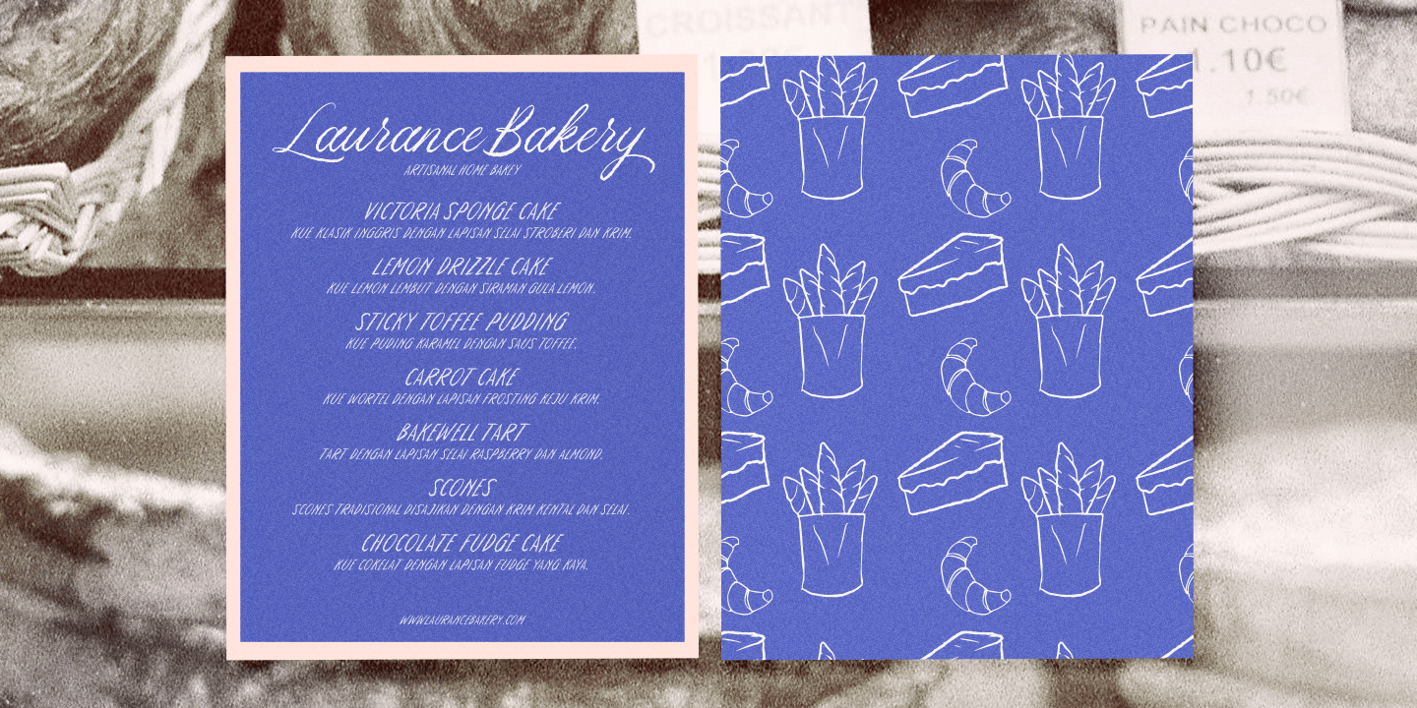 CROISSANT
PAIN CHOCO
1.10€
1.50€
Laurance Bakery
ARTISANAL HOME BAKEY
VICTORIA SPONGE CAKE
KUE KLASIK INGGRIS DENGAN LAPISAN SELAI STROBERI DAN KRIM.
LEMON DRIZZLE CAKE
KUE LEMON LEMBUT DENGAN SIRAMAN GULA LEMON.
STICKY TOFFEE PUDDING
KUE PUDING KARAMEL DENGAN SAUS TOFFEE.
CARROT CAKE
KUE WORTEL DENGAN LAPISAN FROSTING KEJU KRIM.
BAKEWELL TART
TART DENGAN LAPISAN SELAI RASPBERRY DAN ALMOND.
SCONES
SCONES TRADISIONAL DISAJIKAN DENGAN KRIM KENTAL DAN SELAI.
CHOCOLATE FUDGE CAKE
KUE COKELAT DENGAN LAPISAN FUDGE YANG KAYA.
WWW.LAURANCEBAKERY.COM